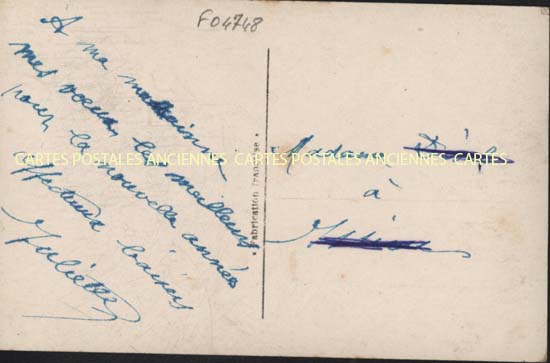 F04748
A ma marraine
mes voeux les meilleurs
pour la nouvelle année
affectueux baisers
Juliette
CARTES POSTALES ANCIENNES CARTES POSTALES ANCIENNES CARTES POSTALES ANCIENNES
• Fabrication Française •
Madame
à